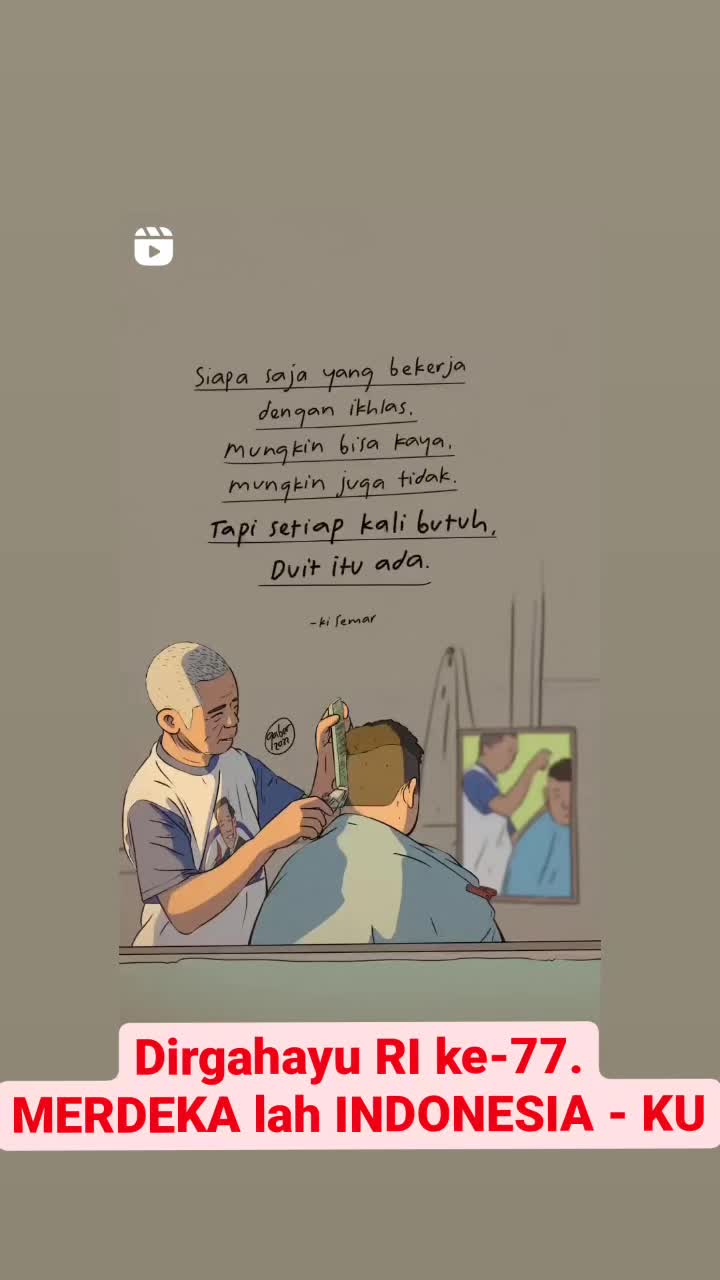 Siapa saja yang bekerja
dengan ikhlas.
mungkin bisa kaya,
mungkin juga tidak.
Tapi setiap kali butuh,
Duit itu ada.
-ki semar
2021
Dirgahayu RI ke-77.
MERDEKA lah INDONESIA - KU